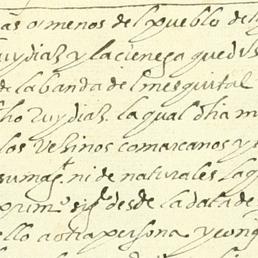 as o menos del pueblo de
uydias y la cienega que dis
de la banda del mesquital
ho Ruydias. la qual dha m
los vesinos comarcanos y
su magt. ni de naturales. la q
prim° sigt desde la data de
ello a otra persona y con